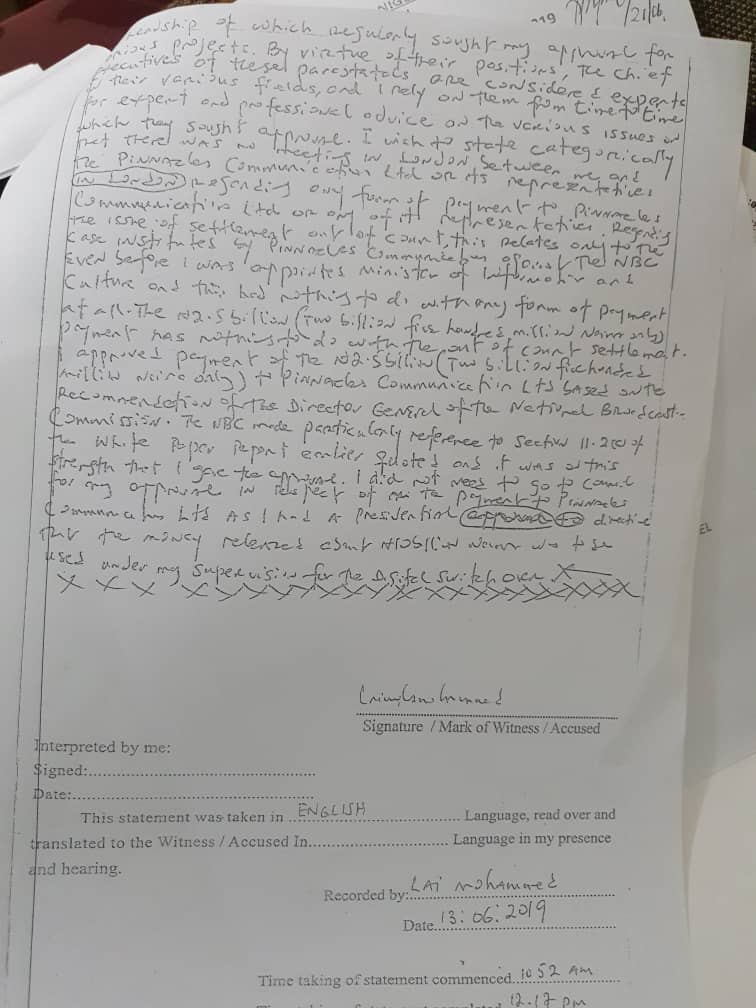 of which regularly sought my approval for
various projects. By virtue of their positions, the chief
executives of these parastatals are considered experts
in their various fields, and I rely on them from time to time
for expert and professional advice on the various issues on
which they sought approval. I wish to state categorically
that there was no meeting in London between me and
the Pinnacles Communication Ltd or its representatives
in London regarding any form of payment to Pinnacles
Communications Ltd or any of its representatives. Regarding
the issue of settlement out of court, this relates only to the
case instituted by Pinnacles Communication against the NBC
even before I was appointed Minister of Information and
Culture and this had nothing to do with any form of payment
at all. The N2.5billion (Two billion five hundred million Naira only)
payment has nothing to do with the out of court settlement.
I approved payment of the N2.5billion (Two billion five hundred
million Naira only) to Pinnacles Communication Ltd based on the
Recommendation of the Director General of the National Broadcast-
Commission. The NBC made particularly reference to Section 11.2(e) of
the White Paper Report earlier quoted and it was on this
strength that I gave the approval. I did not need to go to Council
for my approval in respect of the payment to Pinnacles
Communication Ltd as I had a Presidential approval to directive
that the money released about N10billion Naira was to be
used under my supervision for the Digital Switch Over X
X X X X X X X X X X X X X X X X X X X X X X
Signature / Mark of Witness / Accused
Interpreted by me:
Signed:
Date:
This statement was taken in ENGLISH Language, read over and
translated to the Witness / Accused In Language in my presence
and hearing.
Recorded by: LAI MOHAMMED
Date 13:06:2019
Time taking of statement commenced 10 52 AM
12.17 PM